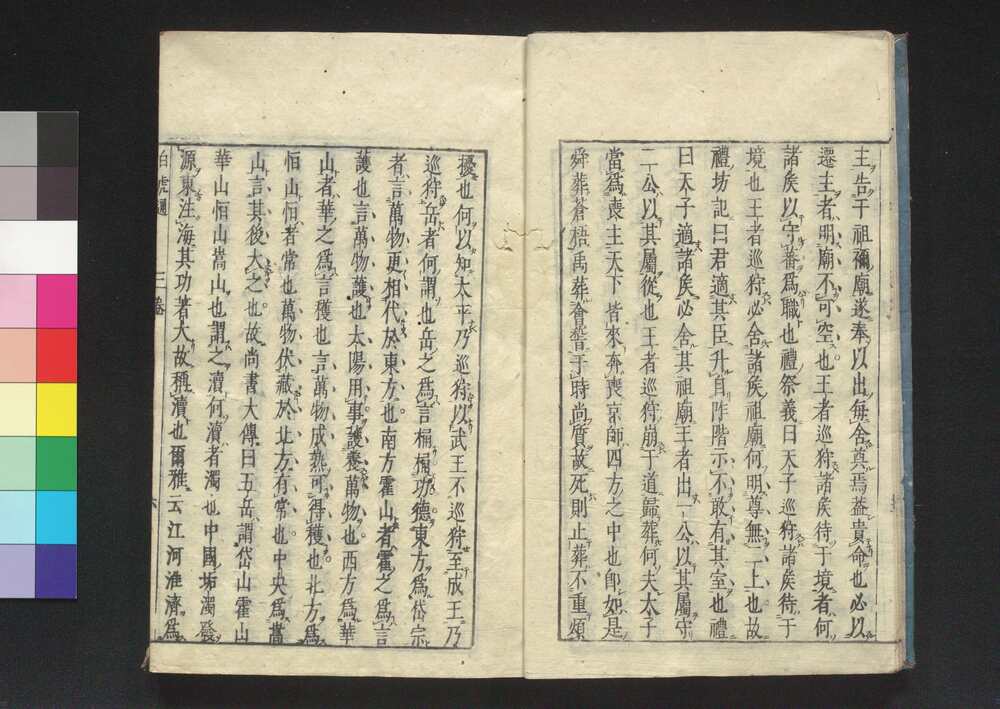 主告于祖禰廟遂奉以出每舍奠焉蓋貴命也必以
遷主者明廟不可空也王者巡狩諸矦待于境者何
諸矦以守蕃爲職也禮祭義曰天子巡狩諸矦待于
境也王者巡狩必舍諸矦祖廟何明尊無二上也故
禮坊記曰君適其臣升自阼階示不敢有其室也禮
曰天子適諸矦必舍其祖廟王者出一公以其屬守
二公以其屬從也王者巡狩崩于道歸葬何夫太子
當爲喪主天下皆來奔喪京師四方之中也卽如是
舜葬蒼梧禹葬會稽于時尚質故死則止葬不重煩
擾也何以知太平乃巡狩以武王不巡狩至成王乃
巡狩岳者何謂也岳之爲言桷桷功德東方爲岱宗
者言萬物更相代於東方也南方霍山者霍之爲言
護也言萬物護也太陽用事護養萬物也西方爲華
山者華之爲言穫也言萬物成熟可得穫也北方爲
恒山恒者常也萬物伏藏於北方有常也中央爲嵩
山言其後大之也故尚書大傳曰五岳謂岱山霍山
華山恒山嵩山也謂之瀆何瀆者濁也中國垢濁發
源東注海其功著大故稱瀆也爾雅云江河淮濟爲
白虎通 三卷 六